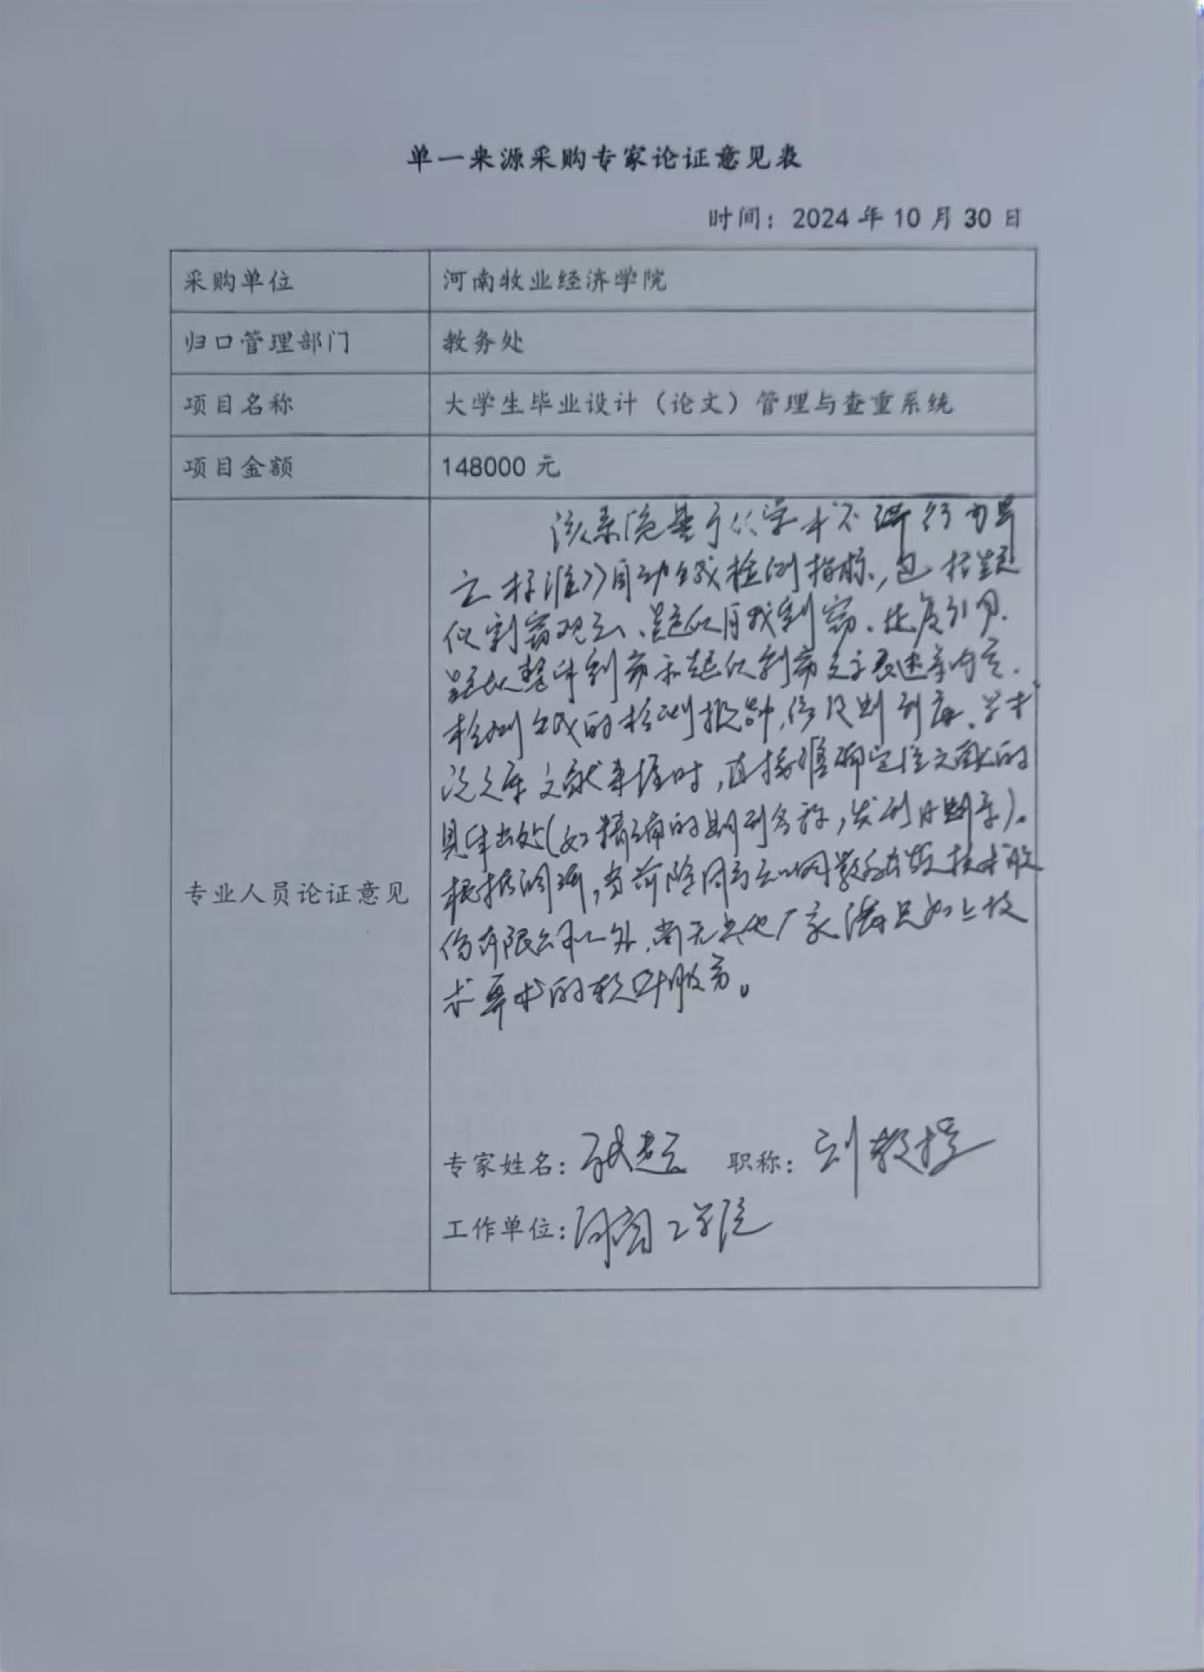 单一来源采购专家论证意见表
时间：2024 年 10 月 30 日
采购单位
河南牧业经济学院
归口管理部门
教务处
项目名称
大学生毕业设计（论文）管理与查重系统
项目金额
148000 元
专业人员论证意见
该系统基于《学术不端行为界
定标准》自动生成检测指标，包括疑
似剽窃观点、疑似自我剽窃、过度引用、
疑似整体剽窃和疑似剽窃文字表述等内容.
检测生成的检测报告,涉及期刊库、学术
论文库文献来源时，直接准确定位文献的
具体出处(如精确的期刊名称，发刊日期等)。
根据调研，当前除同方知网数字出版技术股
份有限公司外，尚无其他厂家满足如上技
术要求的软件服务。
专家姓名：张超 职称：副教授
工作单位：河南工学院